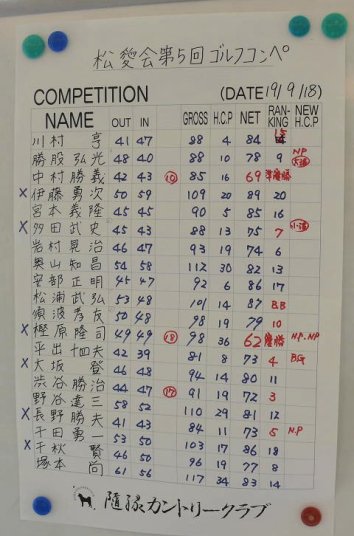 松愛会第5回ゴルフコンペ
COMPETITION (DATE 19/9/18)
NAME OUT IN GROSS H.C.P NET RANKING NEW H.C.P
川村 亨 41 47 88 4 84 15
勝股弘光 48 40 88 10 78 9 NP
中村勝義 42 43 85 16 69 準優勝
× 伊藤勇次 50 59 109 20 89 20
宮本義隆 45 45 90 5 85 16
× 多田武史 45 43 88 13 75 7
岩村晃治 46 47 93 19 74 6
奥山知昌 54 58 112 30 82 13
安部正明 45 47 92 6 86 17
松浦武弘 53 48 101 14 87 BB
孝友 50 48 98 19 79 10
× 樫原隆司 49 49 ⑱ 98 36 62 優勝 NP.NP
平出十四夫 42 39 81 8 73 4 BG
× 大坂 登 46 48 94 14 80 11
渋谷勝治 44 47 ⑰ 91 19 72 3
野谷達三 58 52 110 29 81 12
× 長野勝夫 41 43 84 11 73 5 N.P
千田勇一 53 50 103 17 86 18
× 千秋 賢 46 50 96 19 77 8
塚本 尚 61 56 117 34 83 14
随縁カントリークラブ